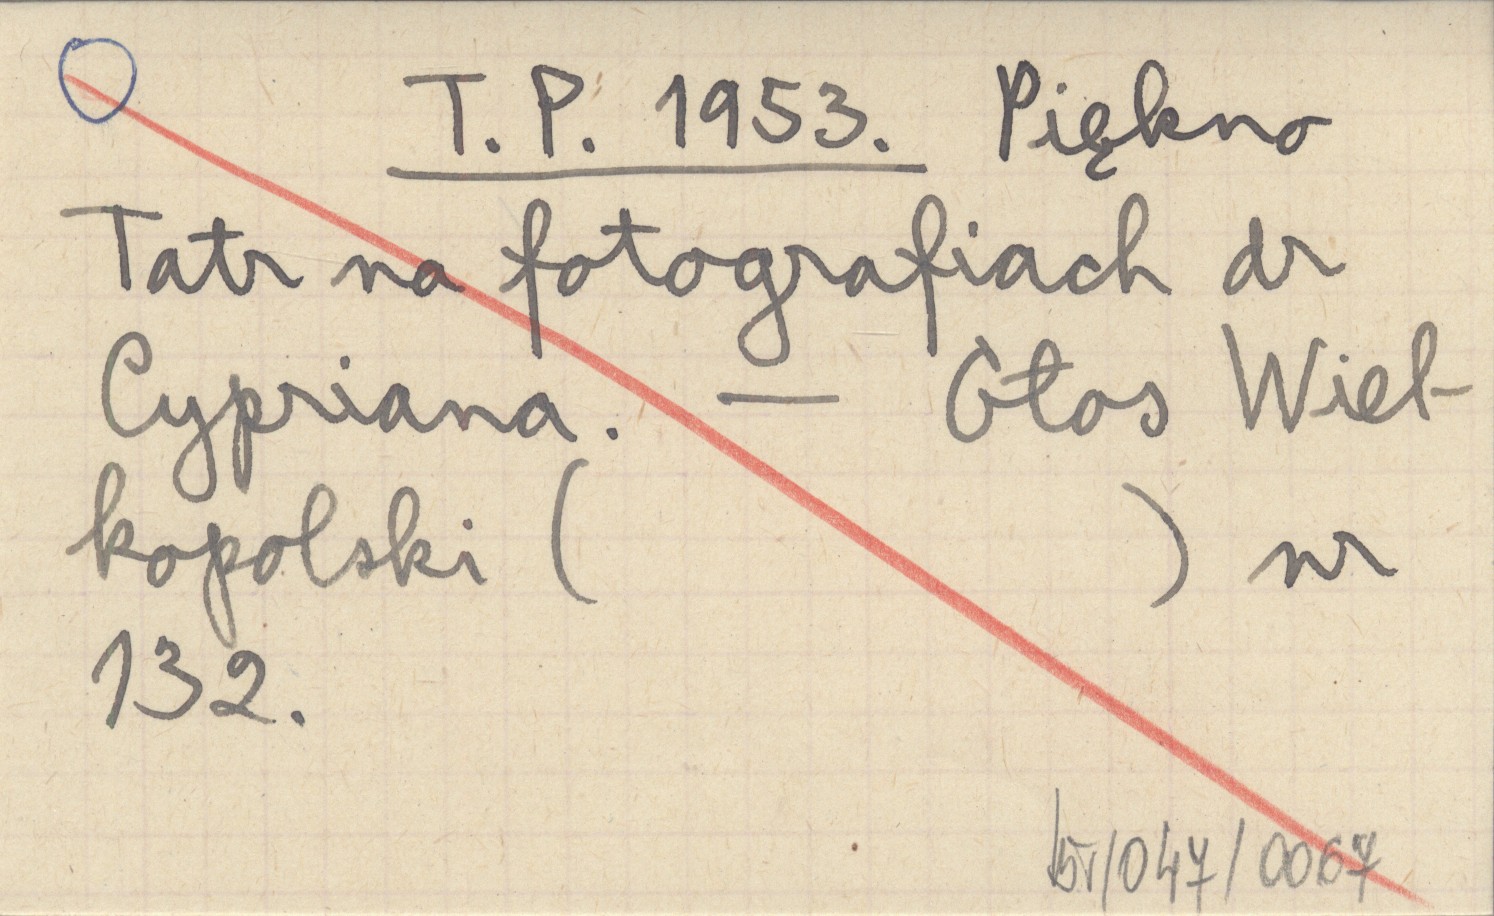 T. P. 1953. Piękno
Tatr na fotografiach dr
Cypriana. — Głos Wiel-
kopolski ( ) nr
132.
/047/0067